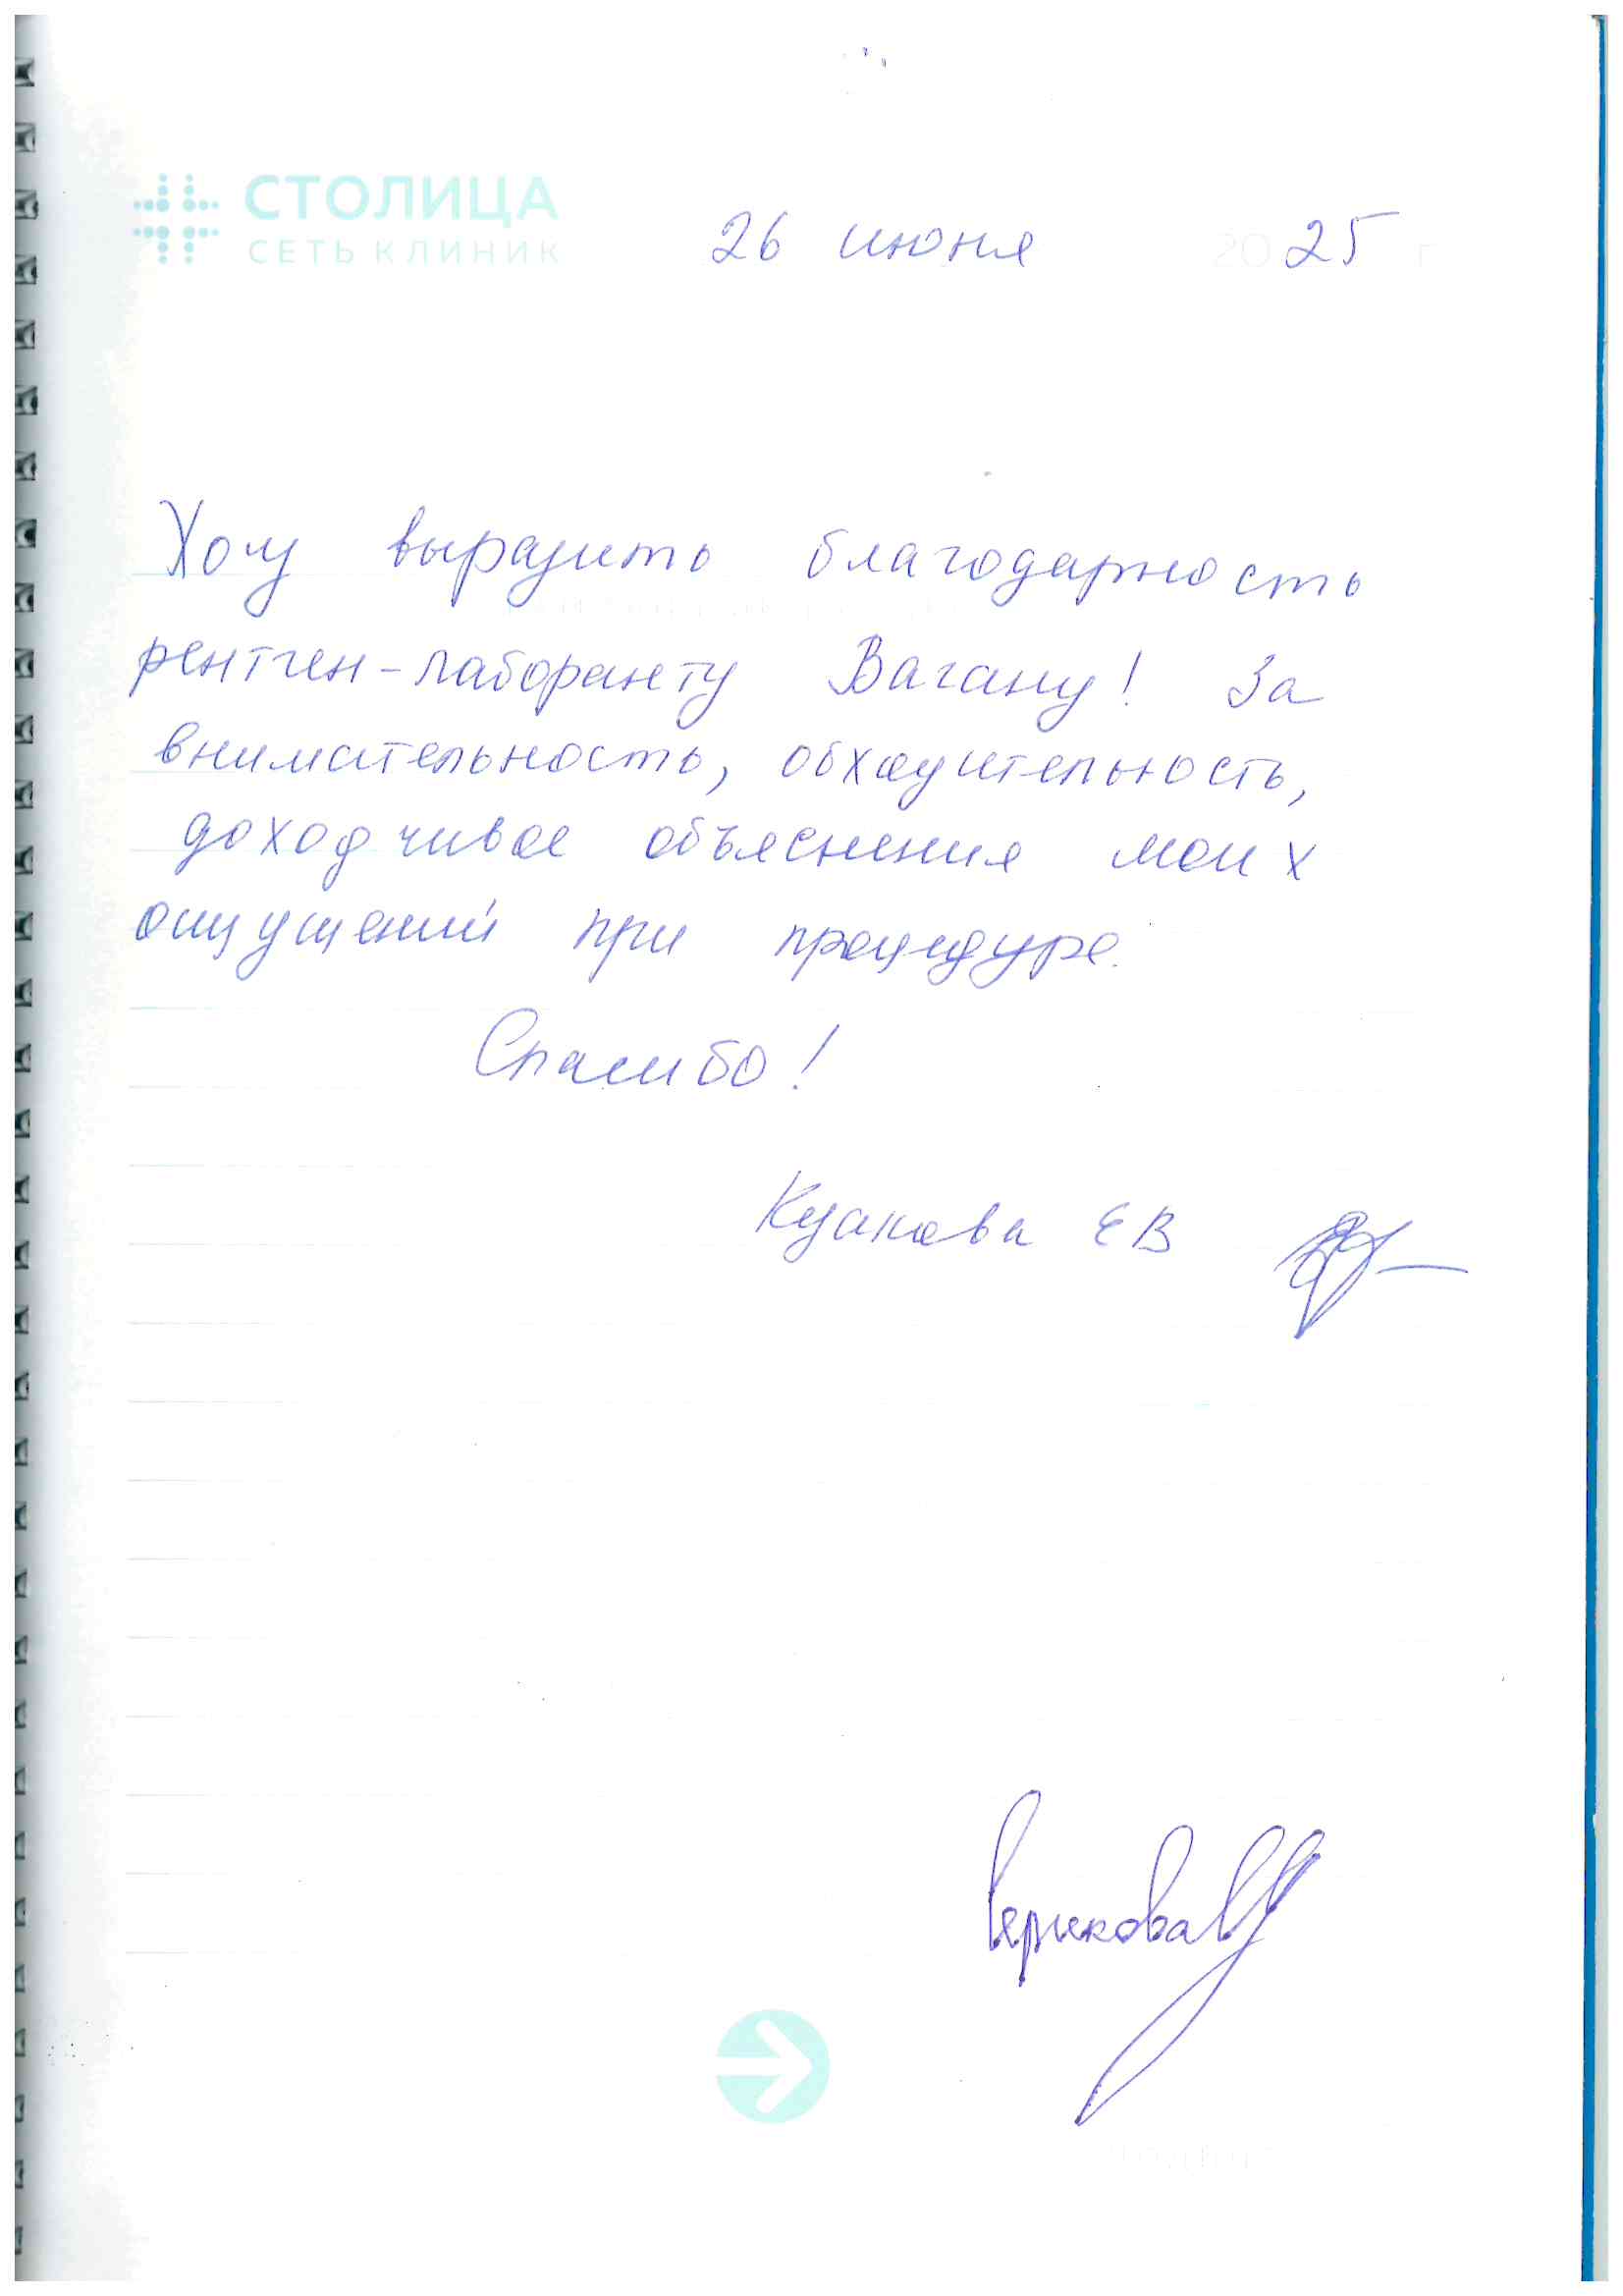 СТОЛИЦА
СЕТЬ КЛИНИК
26 июня 2025 г
Хочу выразить благодарность
рентген-лаборанту Вагану! За
внимательность, обходительность,
доходчивое объяснения моих
ощущений при процедуре.
Спасибо!
ЕВ